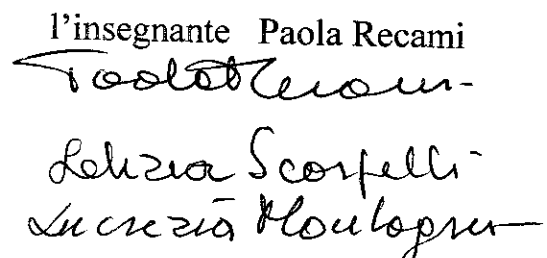 l'insegnante Paola Recami
Paola Recami
Letizia Scorpelli
Lucrezia Montagner